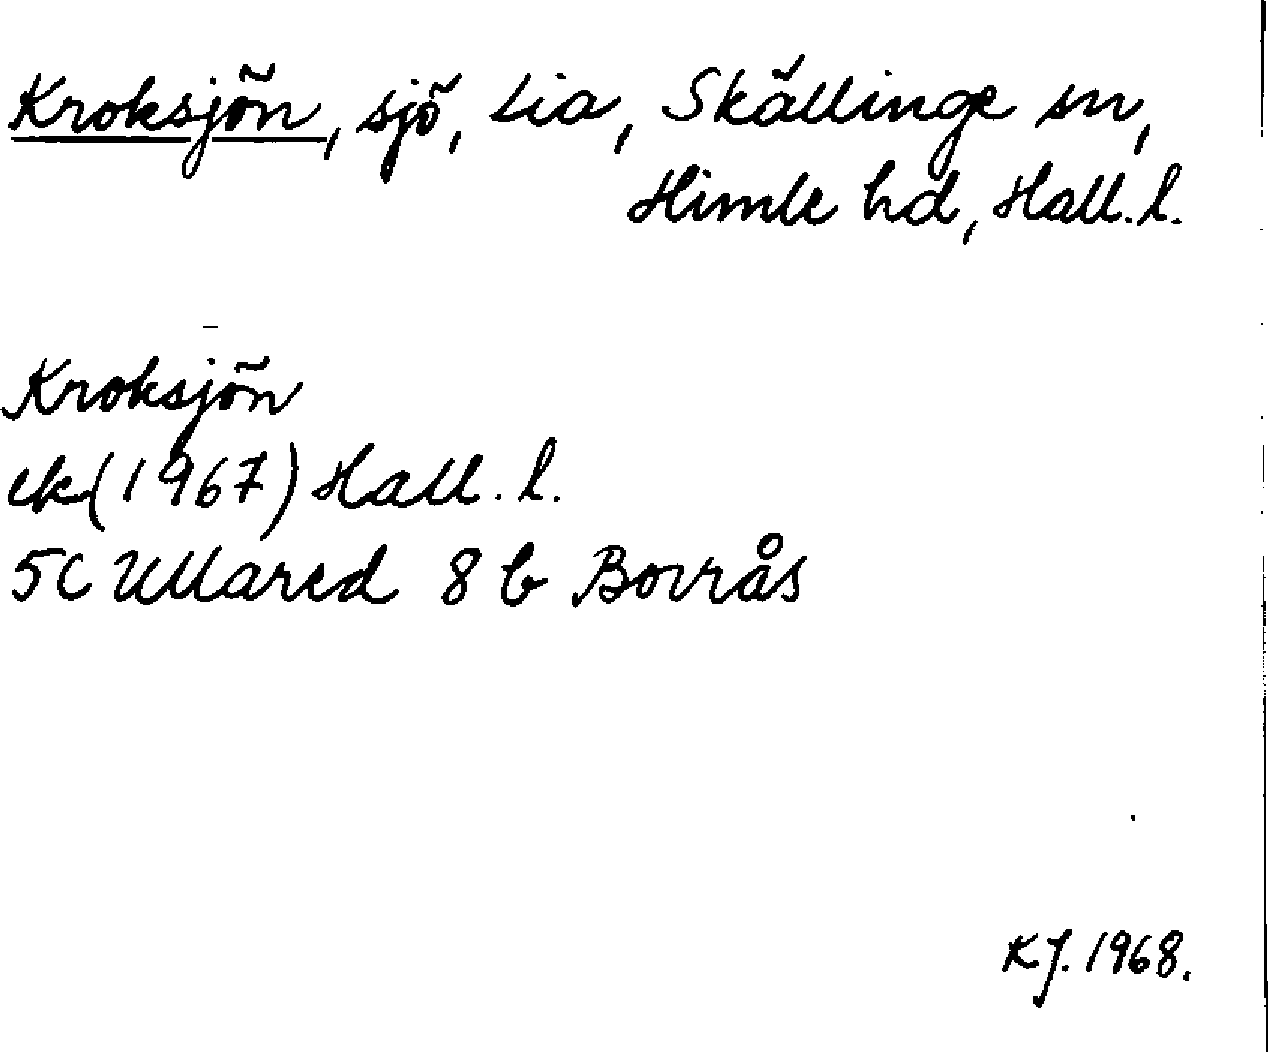 Kroksjön, sjö, Lia, Skällinge sn,
Himle hd, Hall. l.
Kroksjön
ek (1967) Hall. l.
5C Ullared 8 b Borrås
KJ. 1968.